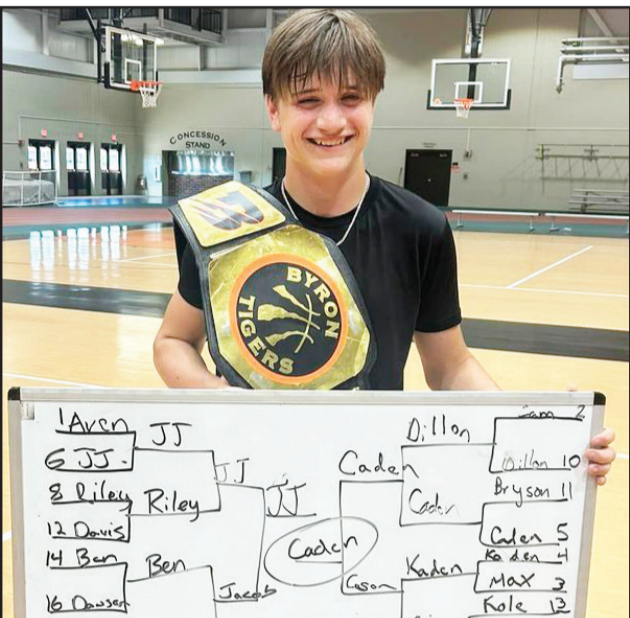 CONCESSION
STAND
BYRON
TIGERS
1 Aven
JJ
6 JJ
8 Riley
Riley
12 Davis
14 Ben
Ben
16 Dawson
JJ
Jacob
JJ
Caden
Caden
Cason
Dillon
Caden
Kaden
Sam 2
Dillon 10
Bryson 11
Caden 5
Kaden 4
Max 3
Kole 13